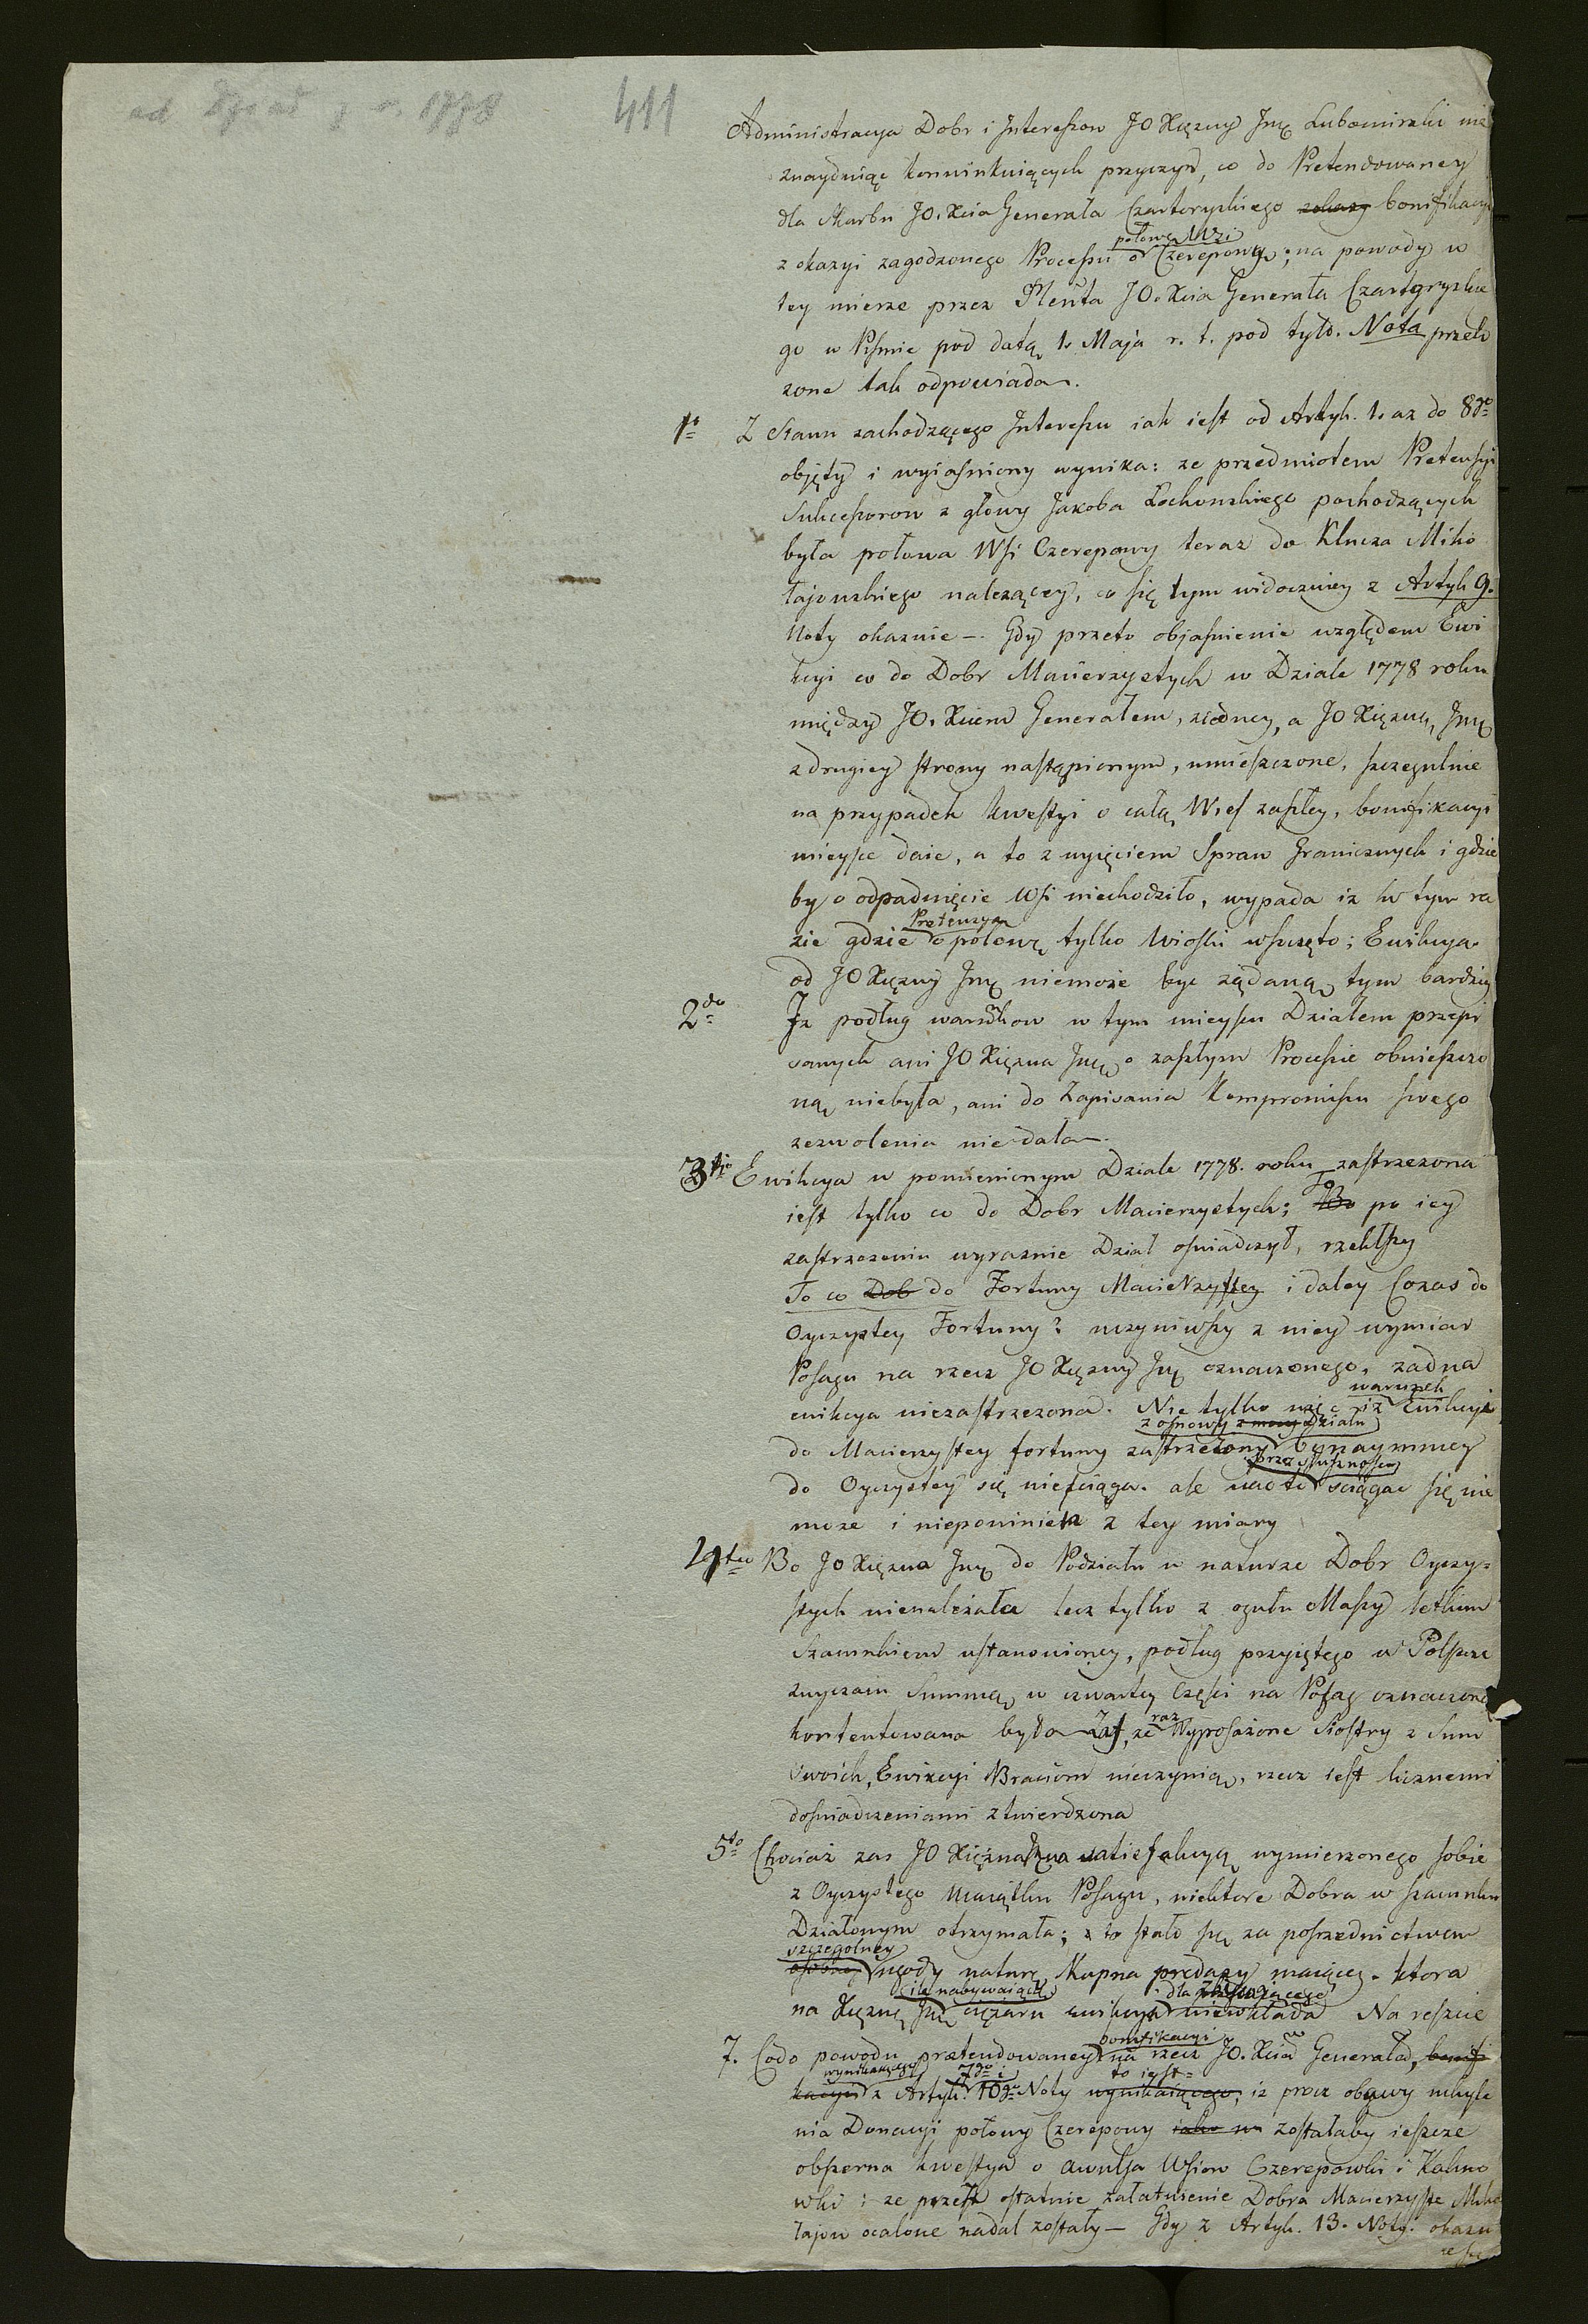 ad Dział z r. 1778
411
Administracya Dobr i Interessow JO Xięzny Jmę Lubomirski nie
znayduiąc konwinkuiących przyczyn, co do Pretendowaney
dla Skarbu JO. Xcia Generała Czartoryskiego bonifikacyi
z okazyi zagodzonego Processu o połowę Wsi Czerepowy; na powody w
tey mierze przez Plenta JO. Xcia Generała Czartoryskie
go w Pismie pod datą 1. Maja r. t. pod tyto. Nota przeło
zone tak odpowiada.
1o Z Stanu zachodzącego Interessu iak iest od Artyk. 1. az do 8go
objęty i wyiasniony wynika: ze przedmiotem Pretensyi
Sukcessorow z głowy Jakoba Lochonskiego pochodzących
była połowa Wsi Czerepowy teraz do Klucza Miko
łajowskiego nalezącey, co się tym widoczniey z Artyk 9.
Noty okazuie —. Gdy przeto objasnienie względem Ewi
kcyi co do Dobr Macierzystych w Dziale 1778 roku
między JO. Xciem Generałem, z iedney, a JO Xięzną, Jmę
z drugiey strony nastąpionym, umieszczone, szczegulnie
na przypadek kwestyi o całą Wies zaszłey, bonifikacyi
mieysce daie, a to z wyięciem Spraw Granicznych i gdzie
by o odpadnięcie Wsi niechodziło, wypada iz w tym ra
zie gdzie Pretensyą o połowę tylko Wioski wszczęto; Ewikcya
od JO Xięzny Jmę niemoże byc ządaną, tym bardziey
2do Iz podług warunkow w tym mieyscu Działem przepi
sanych ani JO Xięzna Jmę o zaszłym Processie obwieszczo
ną niebyła, ani do Zapisania Kompromissu swego
zezwolenia nie dała.
3tio Ewikcya w pomienionym Dziale 1778. roku zastrzezona
iest tylko co do Dobr Macierzystych; Bo To po iey
zastrzezeniu wyraznie Dział oswiadczył, rzekłszy
To co Dob do Fortuny Macierzystey i daley Cozas do
Oyczystey Fortuny? uczyniwszy z niey wymiar
Posagu na rzecz JO Xięzny Jmę oznaczonego, zadna
ewikcya niezastrzezona. Nie tylko więc iz warunek Ewikcyi
do Macierzystey fortuny zastrzezony z osnowy z mocy działu bynaymniey
do Oyczystey się nieściąga. ale nadto przez słusznosc sciągac się nie
moze i niepowinien z tey miary
4to Bo JO Xięzna Jmę do Podziału w naturze Dobr Oyczy=
stych nienależała lecz tylko z ogułu Massy letkim
Szacunkiem ustanowioney, podług przyiętego w Polszcze
zwyczaiu Summą, w czwartey Części na Posag oznaczoną
kontentowana była Zas, ze raz Wyposażone Siostry z Sum
swoich, Ewikcyi Braciom nieczynią, rzecz iest licznemi
doswiadczeniami ztwierdzona
5to Chociaż zas JO Xięzna Jmę satisfakcyą wymierzonego sobie
z Oyczystego Maiątku Posagu, niektore Dobra w szacunku
Działowym otrzymała; to stało się za posrzednictwem
szczegolney osobney ugody naturę Kupna predazy maiącey. ktora
na Xięznę Jmę ile nabywaiącą cięzaru ewikcyi dla niewkłada Na reszcie
7. Codo powodu pretendowaney bonifikacyi na rzecz JO. Xcia Generała, bonifi
kacyi wynikaiącego z Artyk. 7go i 10go Noty wynikaiącego, to iest= iz procz obawy uchyle
nia Donacyi połowy Czerepowy iako w zostałaby ieszcze
obszerna kwestya o awulsa Wsiow Czerepowki i Kalino
wki; ze przeto ostatnie załatwienie Dobra Macierzyste Miko
łajow ocalone nadal zostały — Gdy z Artyk. 13. Noty. okazu